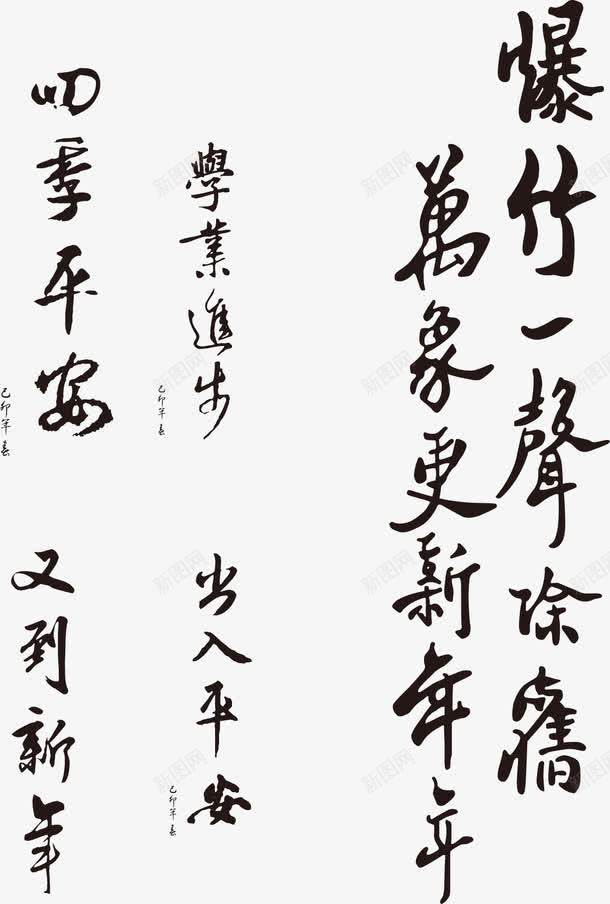 爆竹一聲除舊
萬象更新年年
學業進步
己卯年春
四季平安
己卯年春
出入平安
己卯年春
又到新年
新图网